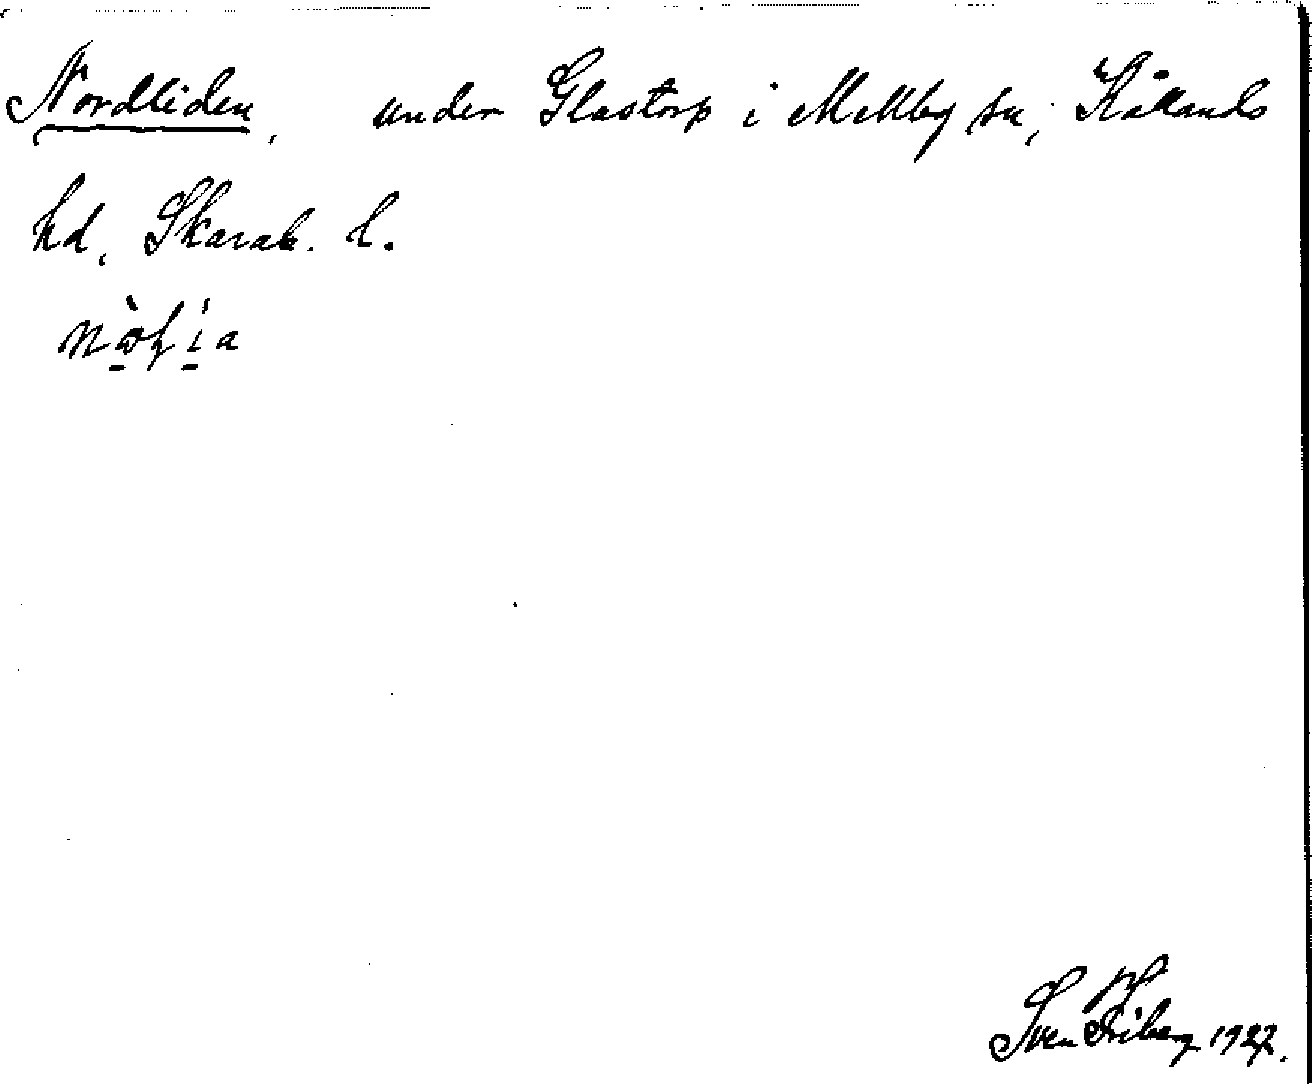 Nordliden, under Glastorp i Mellby sn, Kållands
hd, Skarab. l.
Sven Friberg 1927.